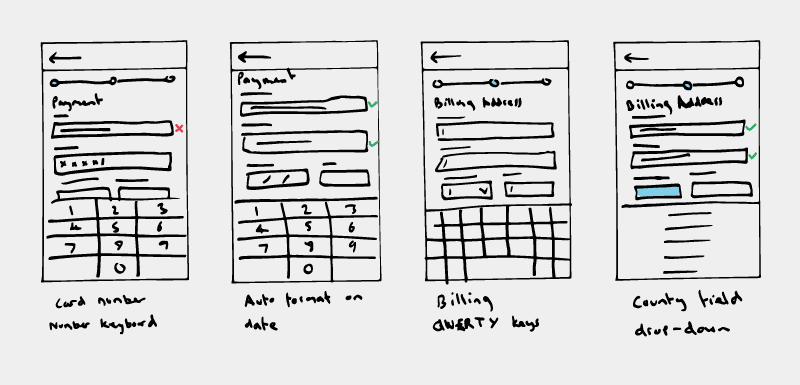 Payment
x x x x
1 2 3
4 5 6
7 8 9
0
Card number
Number keyboard
Payment
1 2 3
4 5 6
7 8 9
0
Auto format on
date
Billing Address
Billing
QWERTY keys
Billing Address
County field
drop-down